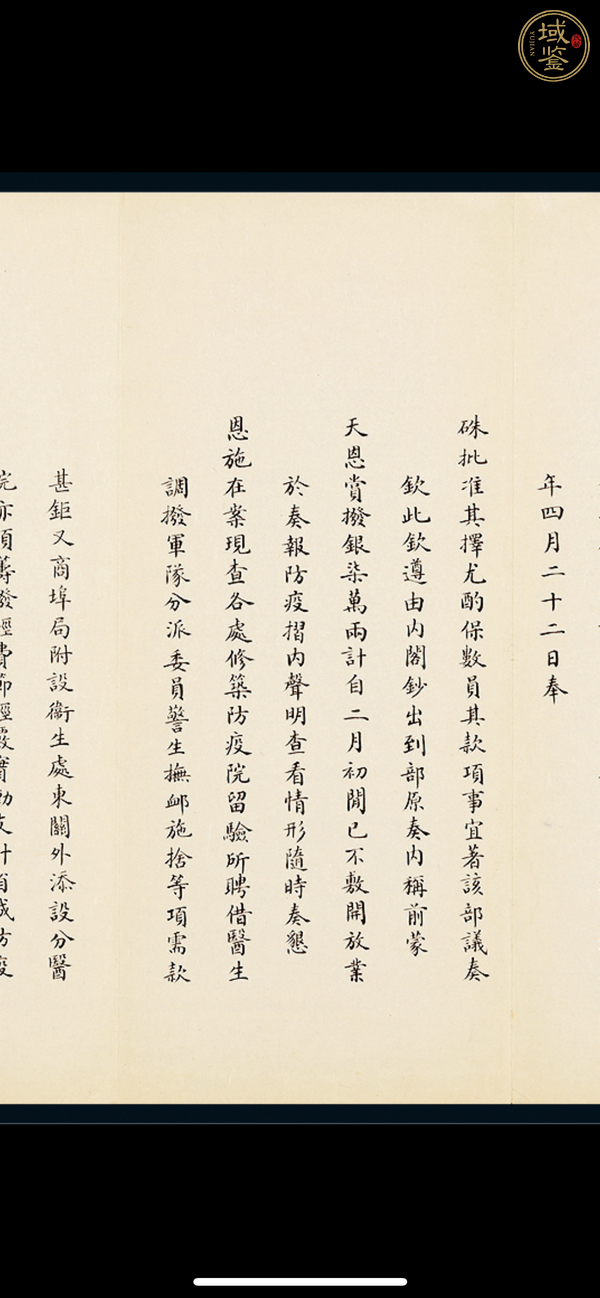 域鉴
YUJIAN
年四月二十二日奉
硃批准其擇尤酌保數員其款項事宜著該部議奏
欽此欽遵由内閣鈔出到部原奏内稱前蒙
天恩賞撥銀柒萬兩計自二月初間已不敷開放業
於奏報防疫摺内聲明查看情形隨時奏懇
恩施在案現查各處修築防疫院留驗所聘借醫生
調撥軍隊分派委員警生撫卹施捨等項需款
甚鉅又商埠局附設衛生處東關外添設分醫
院亦須籌撥經費節經覈實動支計省城防疫